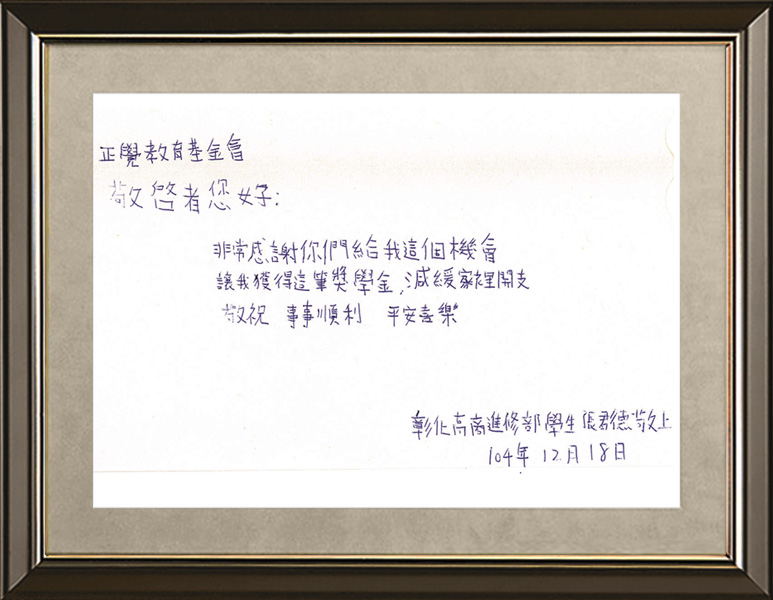 正覺教育基金會
敬啓者您好:
非常感謝你們給我這個機會
讓我獲得這筆獎學金,減緩家裡開支
敬祝 事事順利 平安喜樂
彰化高商進修部學生張君德敬上
104年 12月18日